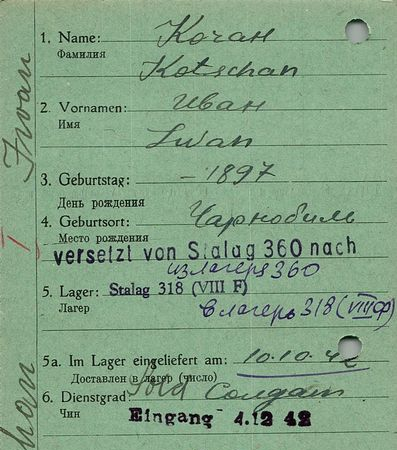 1. Name: Кочан
Фамилия
Kotschan
2. Vornamen: Иван
Имя
Iwan
3. Geburtstag: - 1897
День рождения
4. Geburtsort: Чарнобиль
Место рождения
versetzt von Stalag 360 nach
из лагеря 360
5. Lager: Stalag 318 (VIII F)
Лагер
в лагерь 318 (VIIIФ)
5a. Im Lager eingeliefert am: 10.10.42
Доставлен в лагер (число)
6. Dienstgrad: Sold Солдат
Чин
Eingang 4.12 42
Iwan